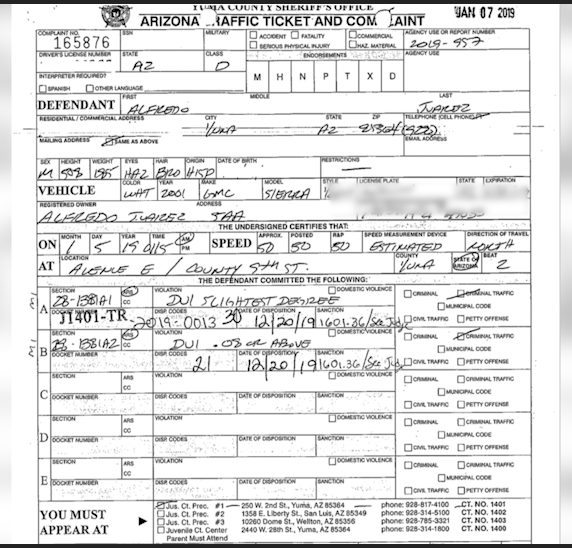 YUMA COUNTY SHERIFF'S OFFICE
ARIZONA TRAFFIC TICKET AND COMPLAINT
JAN 07 2019
COMPLAINT NO. SSN MILITARY ACCIDENT FATALITY COMMERCIAL AGENCY USE OR REPORT NUMBER
165876 SERIOUS PHYSICAL INJURY HAZ. MATERIAL 2019-957
DRIVER'S LICENSE NUMBER STATE CLASS ENDORSEMENTS AGENCY USE
AZ D M H N P T X D
INTERPRETER REQUIRED?
SPANISH OTHER LANGUAGE
DEFENDANT FIRST MIDDLE LAST
ALFREDO JUAREZ
RESIDENTIAL / COMMERCIAL ADDRESS CITY STATE ZIP TELEPHONE (CELL PHONE)
YUMA AZ 85364 (928)
MAILING ADDRESS SAME AS ABOVE EMAIL ADDRESS
SEX HEIGHT WEIGHT EYES HAIR ORIGIN DATE OF BIRTH RESTRICTIONS
M 508 185 HAZ BRO HISP
VEHICLE COLOR YEAR MAKE MODEL STYLE LICENSE PLATE STATE EXPIRATION
WHT 2001 GMC SIERRA
REGISTERED OWNER ADDRESS
ALFREDO JUAREZ SAA
THE UNDERSIGNED CERTIFIES THAT:
ON MONTH DAY YEAR TIME AM PM SPEED APPROX. POSTED R&P SPEED MEASUREMENT DEVICE DIRECTION OF TRAVEL
1 5 19 0115 50 50 50 ESTIMATED NORTH
AT LOCATION COUNTY STATE OF ARIZONA BEAT
AVENUE E / COUNTY 9TH ST. YUMA 2
THE DEFENDANT COMMITTED THE FOLLOWING:
A SECTION ARS CC VIOLATION DOMESTIC VIOLENCE CRIMINAL CRIMINAL TRAFFIC
28-1381A1 DUI SLIGHTEST DEGREE MUNICIPAL CODE
J1401-TR 2019-0013 30 12/20/19 1601.36/See Judg CIVIL TRAFFIC PETTY OFFENSE
B SECTION ARS CC VIOLATION DOMESTIC VIOLENCE CRIMINAL CRIMINAL TRAFFIC
28-1381A2 DUI .08 OR ABOVE MUNICIPAL CODE
DOCKET NUMBER DISP. CODES DATE OF DISPOSITION SANCTION CIVIL TRAFFIC PETTY OFFENSE
21 12/20/19 1601.36/See Judg
C SECTION ARS CC VIOLATION DOMESTIC VIOLENCE CRIMINAL CRIMINAL TRAFFIC
MUNICIPAL CODE
DOCKET NUMBER DISP. CODES DATE OF DISPOSITION SANCTION CIVIL TRAFFIC PETTY OFFENSE
D SECTION ARS CC VIOLATION DOMESTIC VIOLENCE CRIMINAL CRIMINAL TRAFFIC
MUNICIPAL CODE
DOCKET NUMBER DISP. CODES DATE OF DISPOSITION SANCTION CIVIL TRAFFIC PETTY OFFENSE
E SECTION ARS CC VIOLATION DOMESTIC VIOLENCE CRIMINAL CRIMINAL TRAFFIC
MUNICIPAL CODE
DOCKET NUMBER DISP. CODES DATE OF DISPOSITION SANCTION CIVIL TRAFFIC PETTY OFFENSE
YOU MUST APPEAR AT
Jus. Ct. Prec. #1 250 W. 2nd St., Yuma, AZ 85364 phone: 928-817-4100 CT. NO. 1401
Jus. Ct. Prec. #2 1358 E. Liberty St., San Luis, AZ 85349 phone: 928-314-5100 CT. NO. 1402
Jus. Ct. Prec. #3 10260 Dome St., Wellton, AZ 85356 phone: 928-785-3321 CT. NO. 1403
Juvenile Ct. Center 2440 W. 28th St., Yuma, AZ 85364 phone: 928-314-1800 CT. NO. 1400
Parent Must Attend